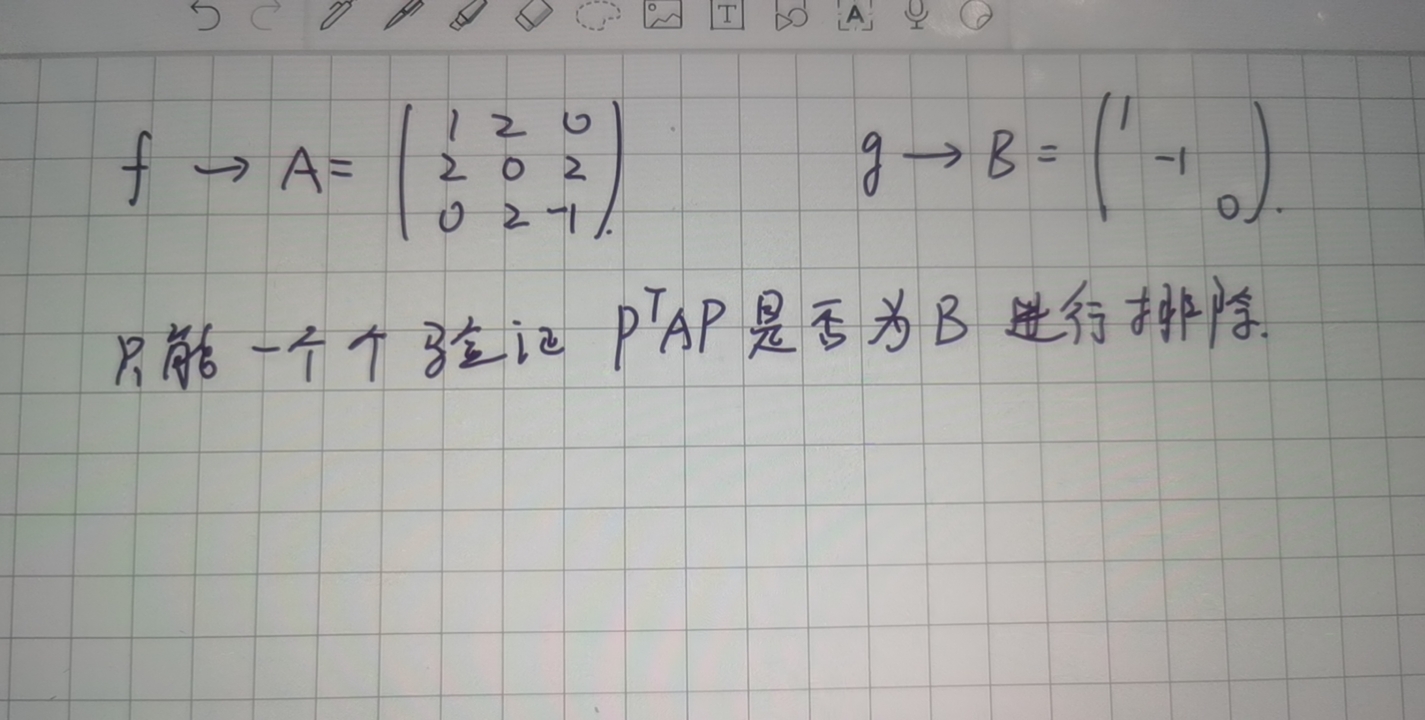 f → A = ( 1 2 0
2 0 2
0 2 -1 ). g → B = ( 1
-1
0 ).
只能一个个验证 PᵀAP 是否为 B 进行排除.